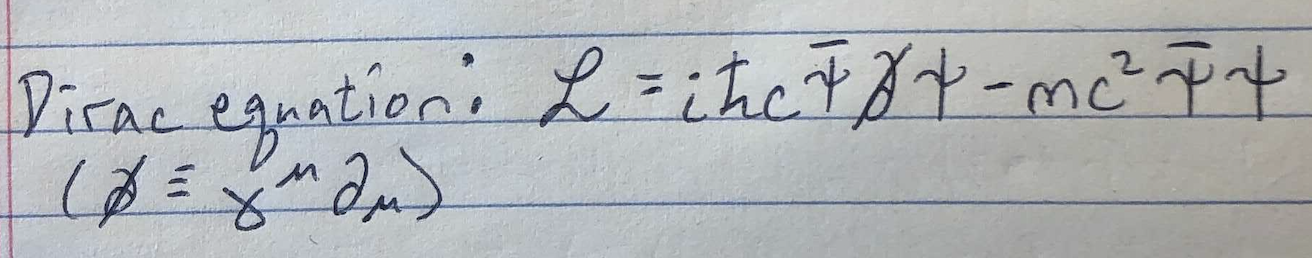 Dirac equation: ℒ = iħc ψ̄ ∂̸ ψ - mc² ψ̄ ψ
(∂̸ ≡ γ^μ ∂_μ)